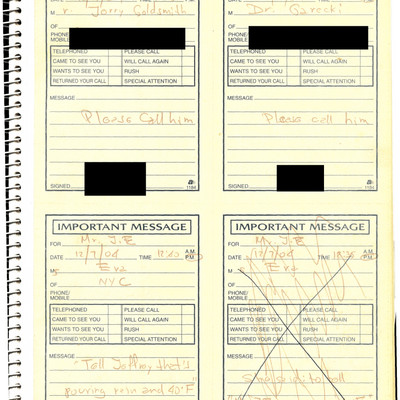 M r. Jerry Goldsmith
OF
PHONE/
MOBILE
TELEPHONED PLEASE CALL
CAME TO SEE YOU WILL CALL AGAIN
WANTS TO SEE YOU RUSH
RETURNED YOUR CALL SPECIAL ATTENTION
MESSAGE
Please call him
SIGNED 1184
M Dr.
OF
PHONE/
MOBILE
TELEPHONED PLEASE CALL
CAME TO SEE YOU WILL CALL AGAIN
WANTS TO SEE YOU RUSH
RETURNED YOUR CALL SPECIAL ATTENTION
MESSAGE
Please call him
SIGNED 1184
IMPORTANT MESSAGE
FOR Mr. J.E
DATE 12/7/04 TIME A.M. P.M.
M s Eva
OF NYC
PHONE/
MOBILE
TELEPHONED PLEASE CALL
CAME TO SEE YOU WILL CALL AGAIN
WANTS TO SEE YOU RUSH
RETURNED YOUR CALL SPECIAL ATTENTION
MESSAGE
"Tell Jeffrey, that's
pouring rain and 40°F
IMPORTANT MESSAGE
FOR Mr. J.E
DATE 12/7/04 TIME A.M. P.M.
M s Eva
OF
PHONE/
MOBILE
TELEPHONED PLEASE CALL
CAME TO SEE YOU WILL CALL AGAIN
WANTS TO SEE YOU RUSH
RETURNED YOUR CALL SPECIAL ATTENTION
MESSAGE